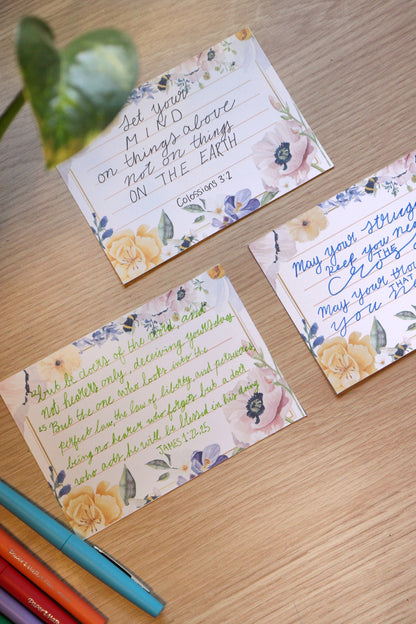 Set your
MIND
on things above
not on things
ON THE EARTH
Colossians 3:2
May your strugg
keep you nea
THE
Cross
May your tro
THAT
you
but be doers of the word, and
not hearers only, deceiving yourselves
25 But the one who looks into the
perfect law, the law of liberty, and perseveres,
being no hearer who forgets but a doer
who acts, he will be blessed in his doing
JAMES 1: